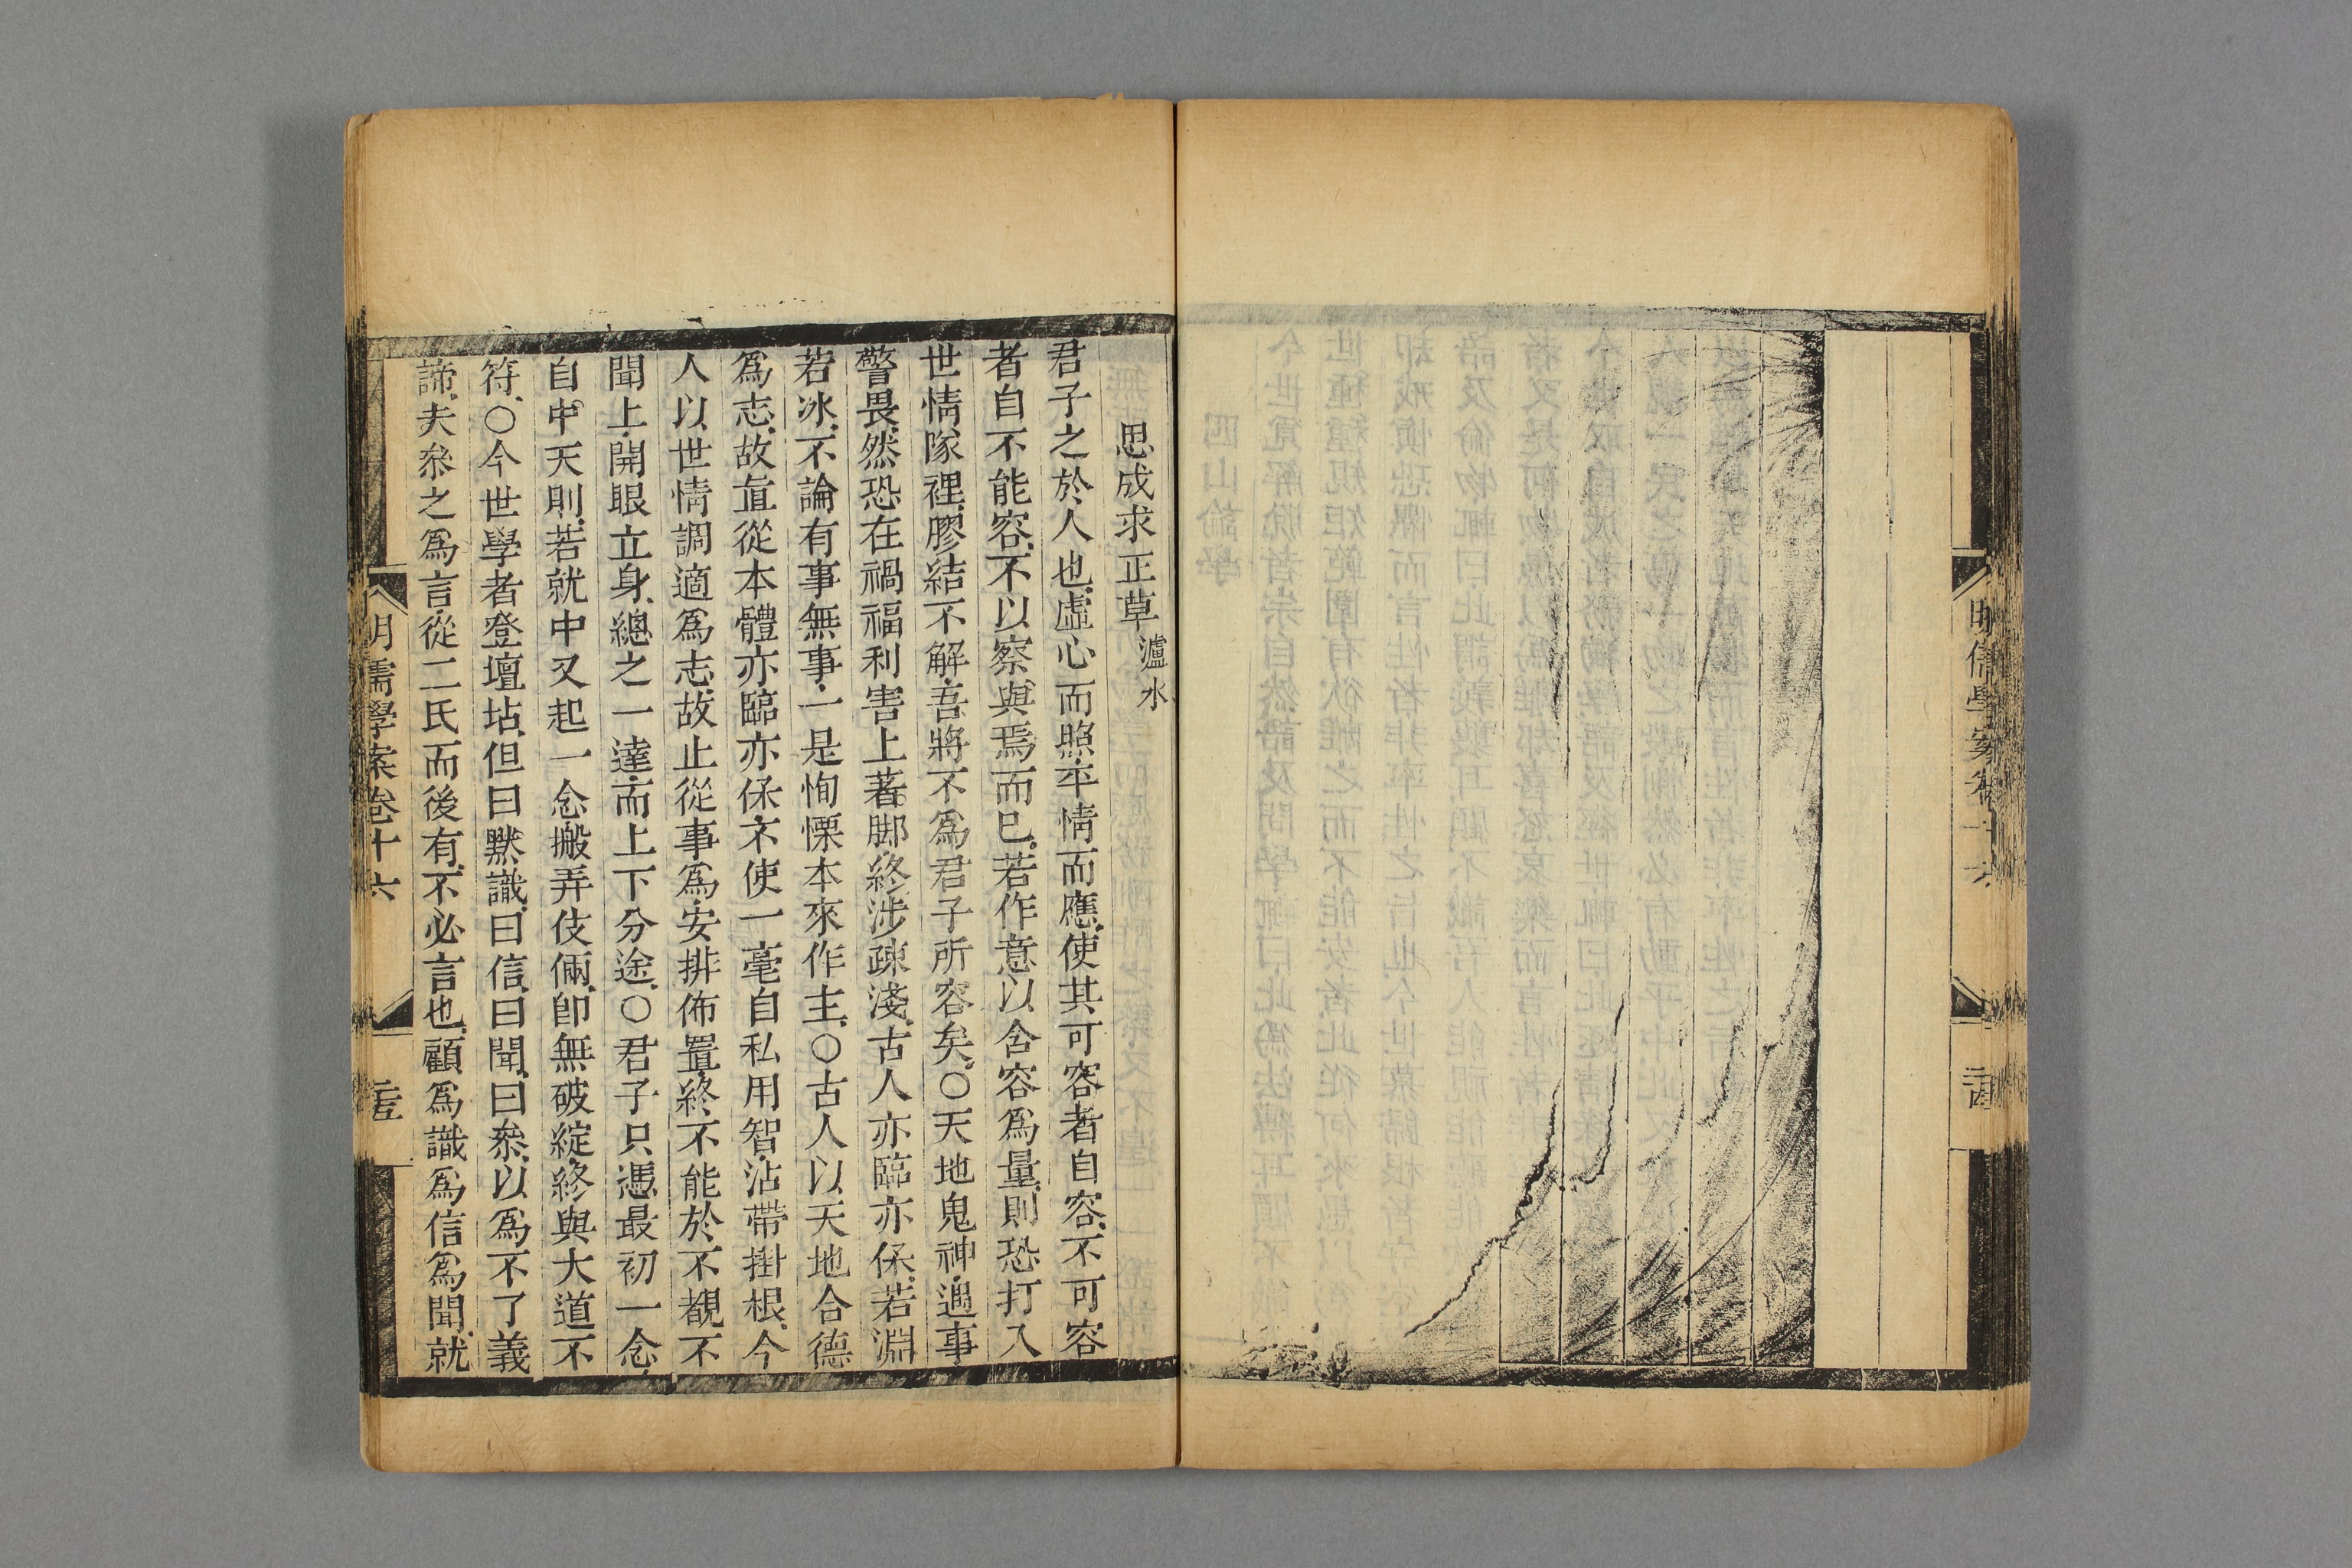 明儒學案卷十六
思成求正草瀘水
君子之於人也虛心而照平情而應使其可容者自容不可容
者自不能容不以察與焉而已若作意以含容爲量則恐打入
世情隊裡膠結不解吾將不爲君子所容矣○天地鬼神遇事
警畏然恐在禍福利害上著脚終涉疎淺古人亦臨亦保若淵
若冰不論有事無事一是恂慄本來作主○古人以天地合德
爲志故直從本體亦臨亦保不使一毫自私用智沾帶掛根今
人以世情調適爲志故止從事爲安排佈置終不能於不覩不
聞上開眼立身總之一達而上下分途○君子只憑最初一念
自中天則若就中又起一念搬弄伎倆卽無破綻終與大道不
符○今世學者登壇坫但曰默識曰信曰聞曰叅以爲不了義
諦夫叅之爲言從二氏而後有不必言也顧爲識爲信爲聞就
明儒學案卷十六